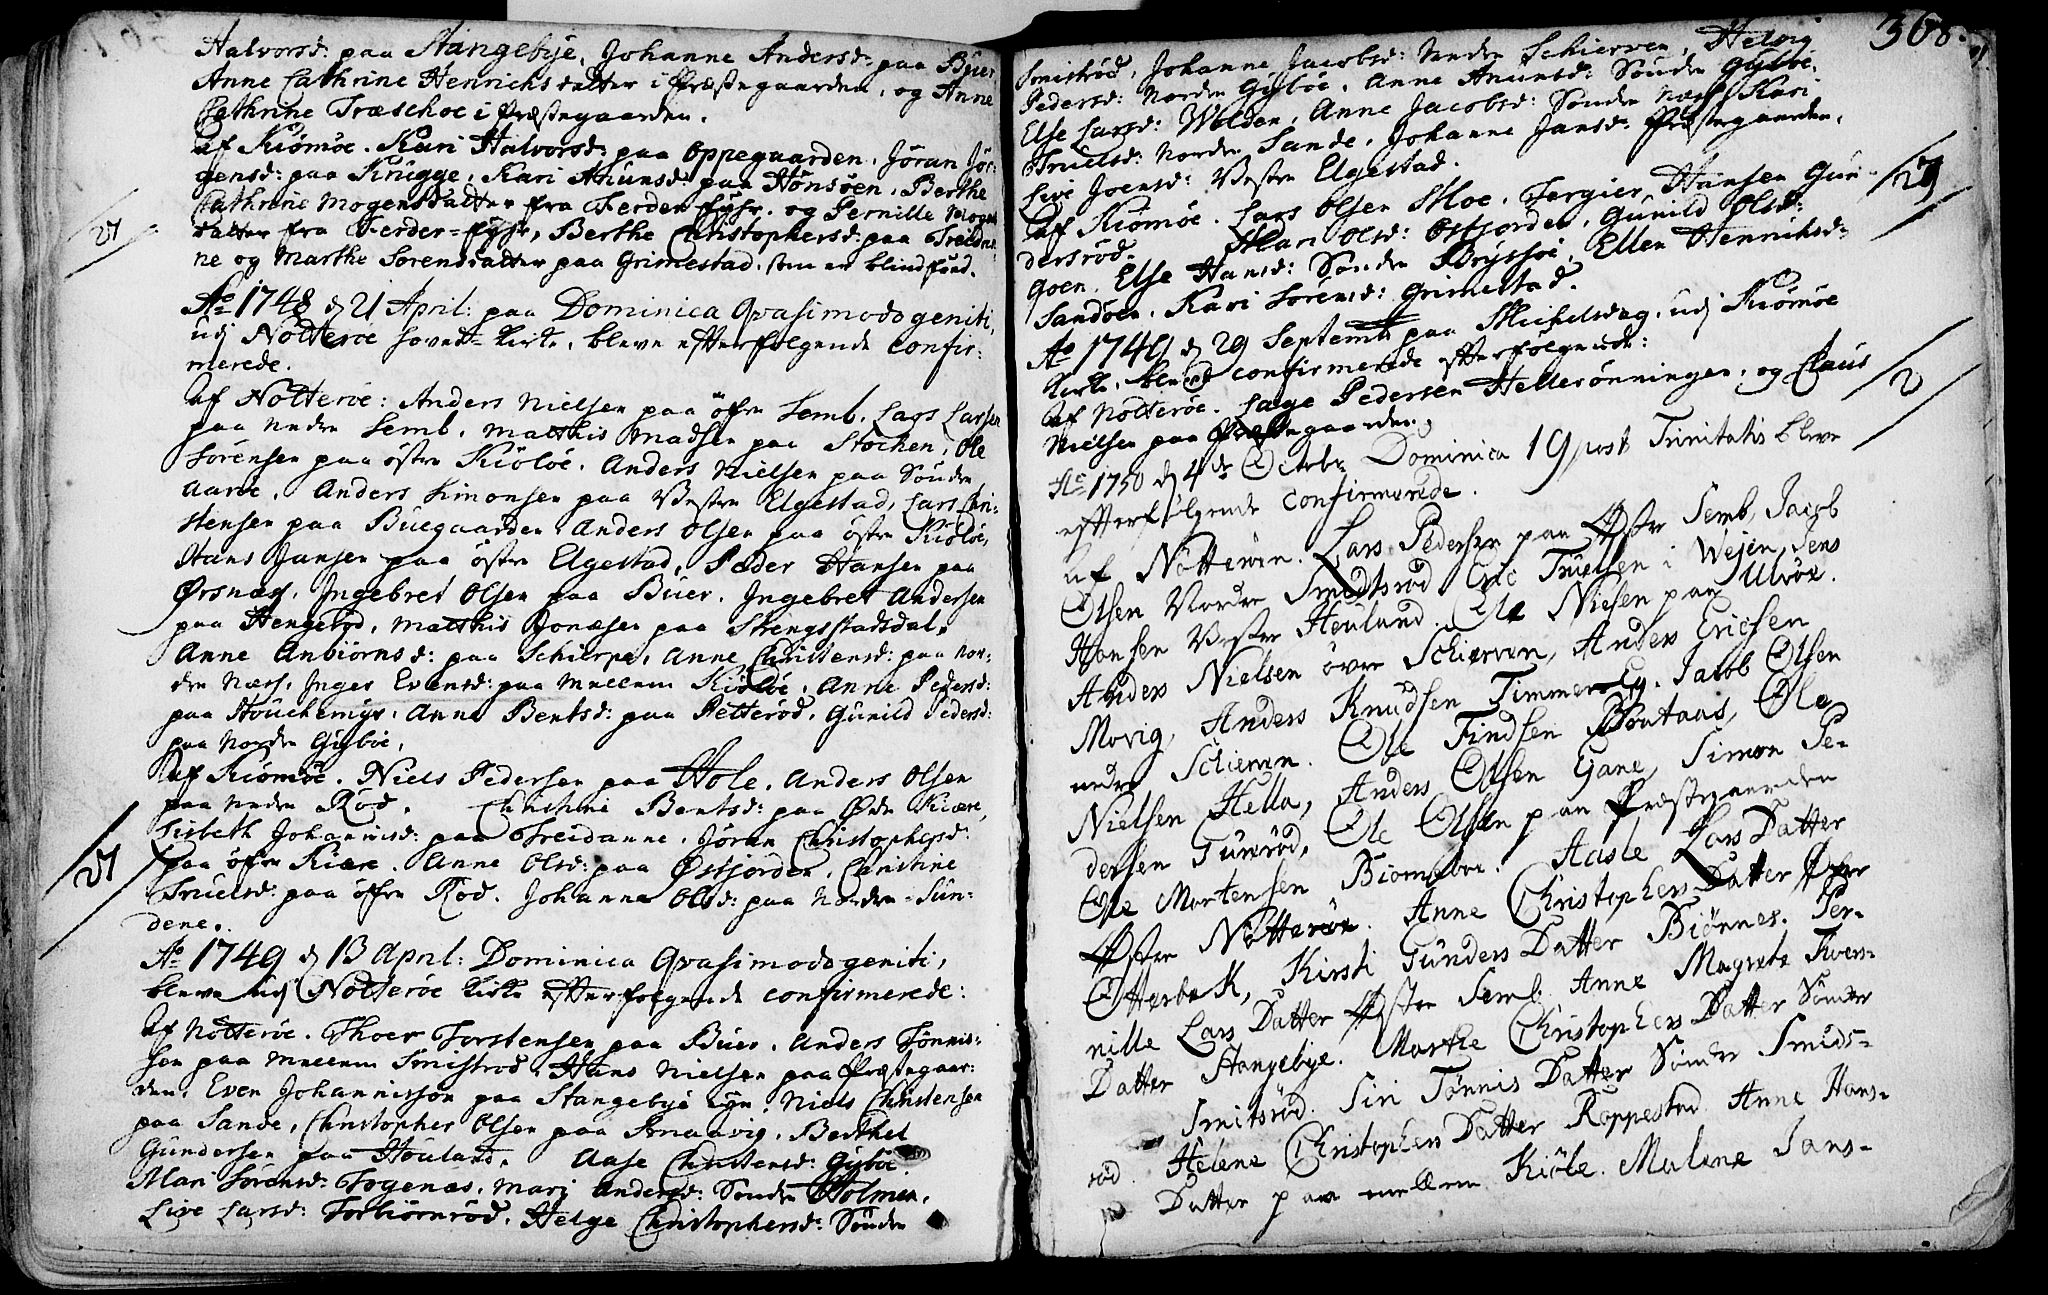 Halvorsd: paa Stangebye, Johanne Andersd: paa Buer
Anne Cathrine Henrichsdatter i Præstegaarden, og Anne
Cathrine Træschoe i Præstegaarden.
Af Kiömöe. Kari Halvorsd: paa Oppegaarden. Jöran Jör:
gensd: paa Krugge, Kari Anunsd: paa Hönsöen. Berthe
Cathrine Mogensdatter fra Ferder fyhr. og Pernille Mogens
datter fra Ferder-fyhr, Berthe Christophersd: paa Treidene
ne og Marthe Sorensdatter paa Grimestad, som er blindföd.
27
Ao 1748 d 21 April: paa Dominica Qvasimodogeniti,
udj Nötteröe hoved-kirke, bleve efterfölgende confir:
merede.
Af Nötteröe: Anders Nielsen paa öfre Semb, Lars Larsen
paa nedre Semb. Matthis Madsen paa Stochen, Ole
Sörensen paa östre Kiölöe. Anders Nielsen paa Söndre
Aaröe. Anders Simonsen paa Vestre Elgestad, Lars Chri:
stensen paa Buegaarden. Anders Olsen paa östre Kiölöe,
Hans Jansen paa östre Elgestad, Peder Hansen paa
Örsnæs, Ingebret Olsen paa Buer. Ingebret Andersen
paa Hengeröd, Matthis Jonæsen paa Strengsstadsdal.
Anne Anbiörnsd: paa Schierpe, Anne Christensd: paa Nor:
dre Næss, Inger Evensd: paa mellem Kiölöe. Anne Pedersd:
paa Houchemyr. Anne Bentsd: paa Petteröd. Gunild Pedersd:
paa Nordre Gipböe.
Af Kiömöe. Niels Pedersen paa Hole. Anders Olsen
paa nedre Röd. Christine Bentsd: paa Öde Kiære,
Lisbeth Johannisd: paa Treidanne. Jöran Christophersd:
paa öfre Kiære. Anne Olsd: paa Östjorden. Christine
Truelsd: paa öffre Rod. Johanne Olsd: paa Norden-Sun-
dene.
27
Ao 1749 d 13 April: Dominica Qvasimodogeniti,
bleve udj Nötteröe kirke efterfölgende confirmerede:
Af Nötteröe. Thoer Torstensen paa Buer. Anders Tönnis:
sön paa mellem Smiströd. Hans Nielsen paa Præstegaar:
den. Even Johannissön paa Stangebye. Niels Christensen
paa Sande, Christopher Olsen paa Smaavig. Berthel
Gundersen paa Houland. Aase Christensd: Gipböe
Mari Sörensd: Togenæs. Mari Andersd: Söndre Holmen.
Live Larsd: Torbiörnröd. Helge Christophersd: Söndre
368.
Smiströd, Johanne Jacobsd: Nedre Schierven, Helvig
Pedersd: Norden Gipböe. Anne Anunsd: Söndre Gipböe.
Else Larsd: Wolden, Anne Jacobsd: Söndre Næss, Kari
Truelsd: Norden Sande. Johanne Jansd: Præstegaarden.
Live Joensd: Vestre Elgestad.
Af Kiömöe. Lars Olsen Moe. Torgier Hansen Gun
dersröd. Mari Olsd: Östjorden. Gunild Olsd:
goen. Else Hansd: Söndre Bryssöe. Ellen Henriksd:
Sandöen. Kari Sörensd: Grimestad.
27
Ao 1749 d 29 Septemb: paa Michelsdag, udj Kiömöe
kirke, bleve confirmerede efterfölgende:
Af Nötteröe. Lage Pedersen Hellerönningen. og Claus
Nielsen paa Præstegaarden.
2
Ao 1750 d 4de Octobr Dominica 19 post Trinitatis bleve
efterfölgende confirmerede.
Af Nötteröen. Lars Pedersen paa Östre Semb, Jacob
Olsen Nordre Smidtsröd Eric Truelsen i Wejen, Jens
Hansen Vestre Höuland. Ole Nielsen paa Ulvöe.
Anders Nielsen övre Schierven, Anders Ericsen
Movig, Anders Knudsen Timmeraas. Jacob Olsen
nedre Schierven. Ole Findsen Bontaas, Ole
Nielsen Hella, Anders Olsen Gane, Simon Pe-
dersen Tureröd, Ole Olsen paa Præstegaarden
Ole Mortensen Biorneboe. Aasle Lars Datter
Östre Nötteröe. Anne Christophers Datter Öfre
Otterbek, Kirsti Gunders Datter Biönnes. Per-
nille Lars Datter Östre Semb Anne Magrete Tvers-
Datter Stangebye. Marthe Christophers Datter Söndre
Smitsröd. Siri Tönnis Datter Söndre Smids-
röd. Helene Christophers Datter Roppestad Anne Hans-
Datter paa mellem Kiöle. Malene Jans-